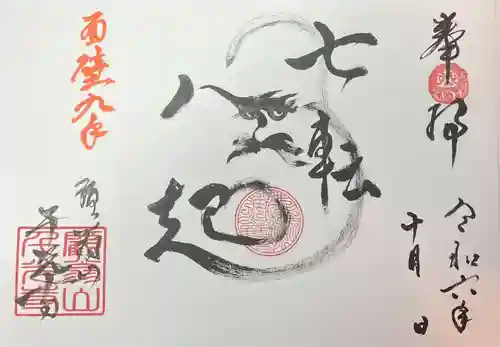 奉拝
令和六年
十月 日
七転
八起
面壁九年